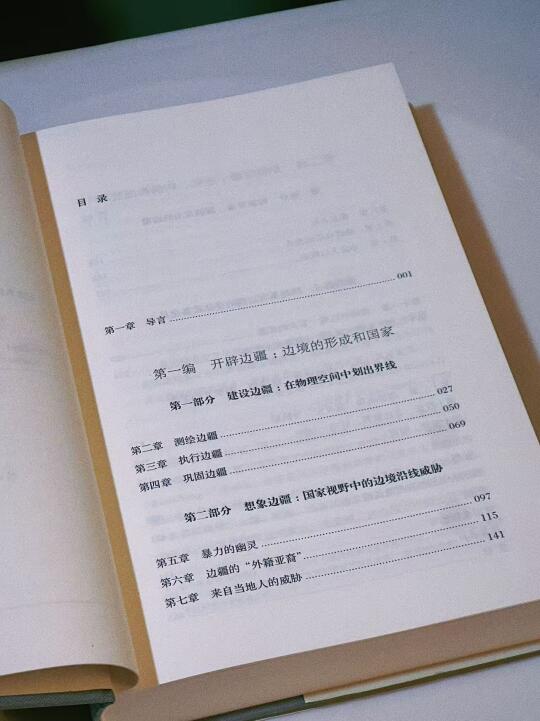 目 录
第一章 导言 001
第一编 开辟边疆：边境的形成和国家
第一部分 建设边疆：在物理空间中划出界线
第二章 测绘边疆 027
第三章 执行边疆 050
第四章 巩固边疆 069
第二部分 想象边疆：国家视野中的边境沿线威胁
第五章 暴力的幽灵 097
第六章 边疆的“外籍亚裔” 115
第七章 来自当地人的威胁 141